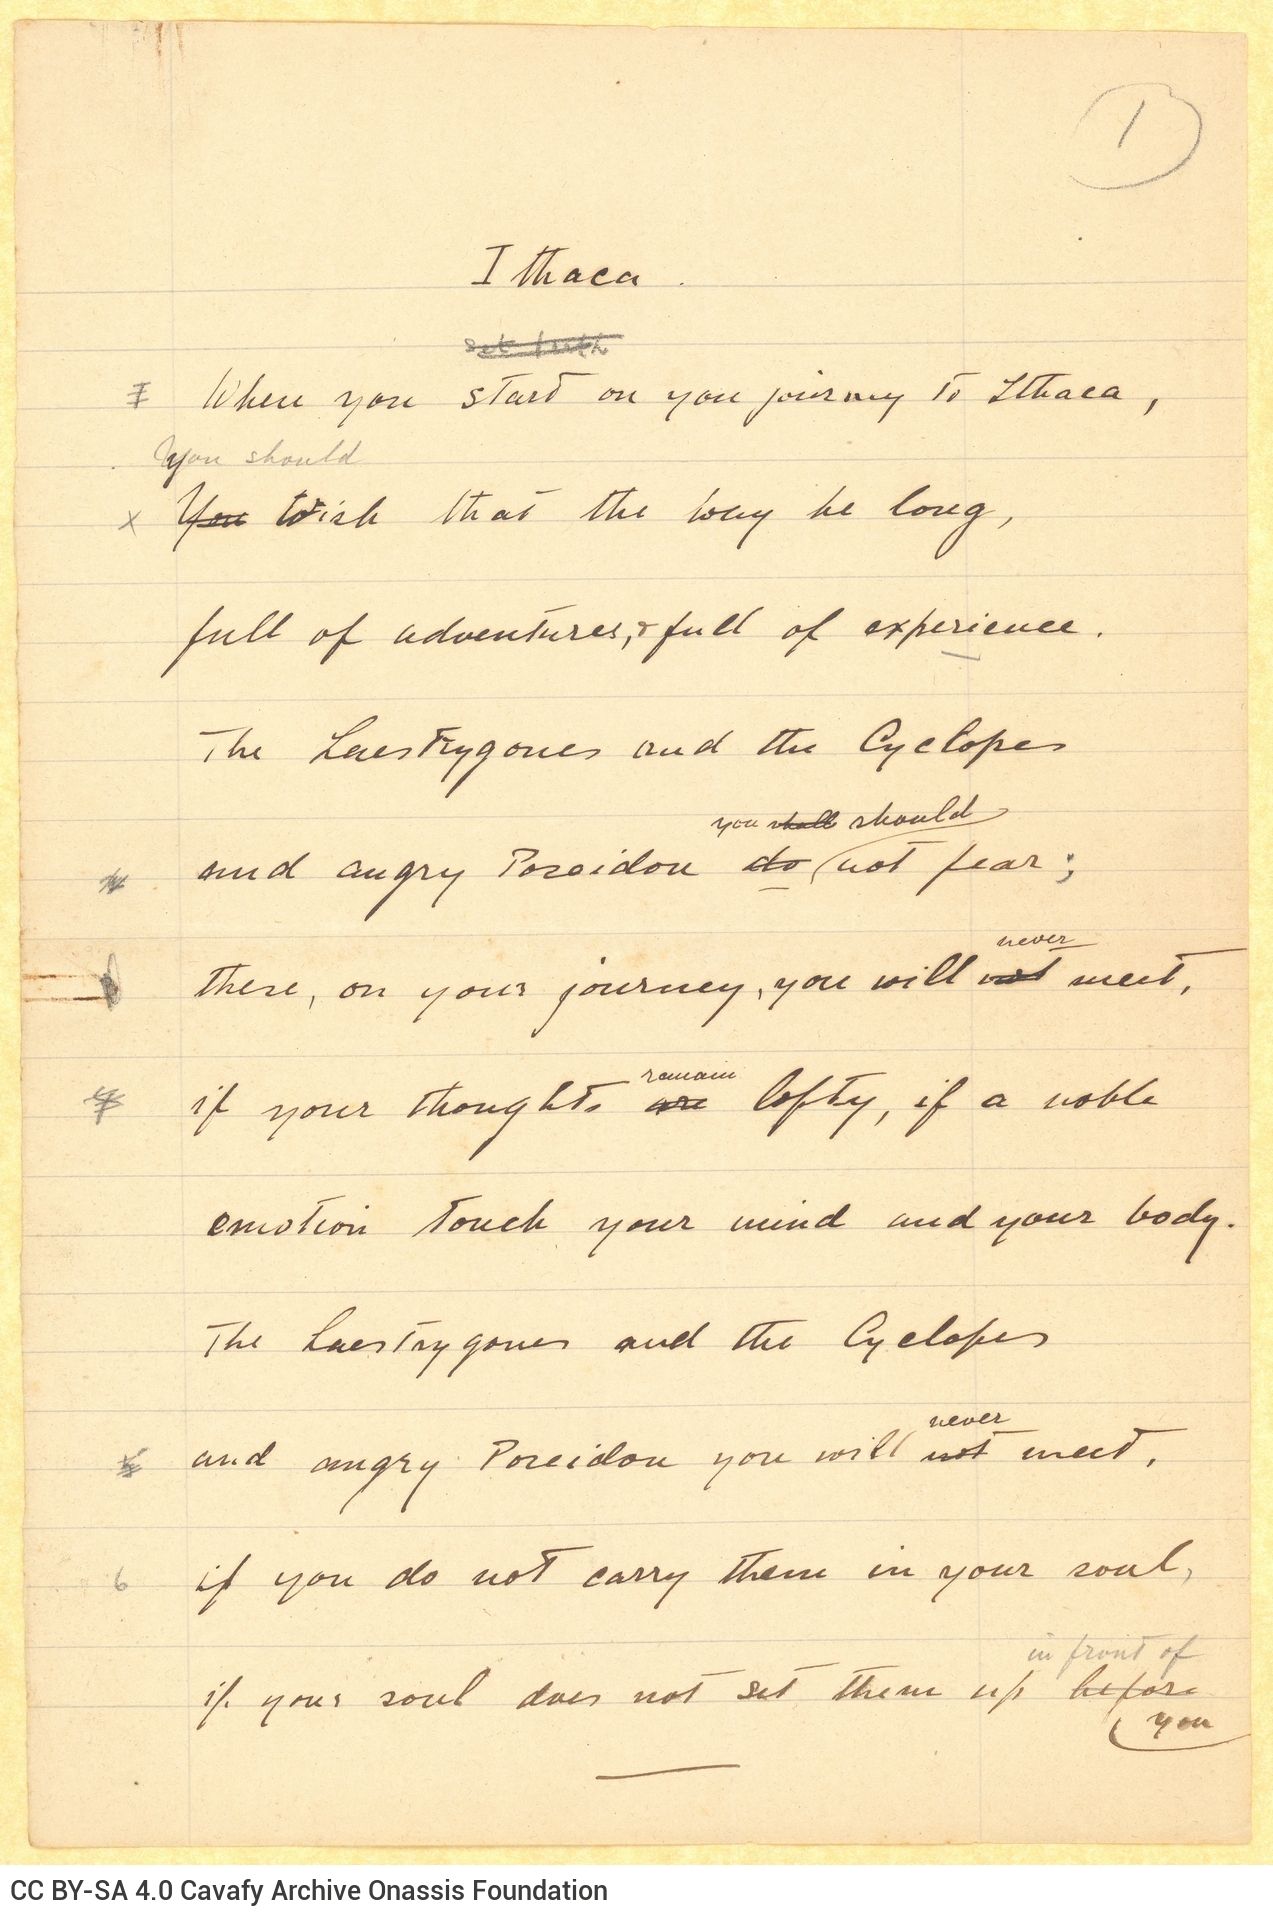 1
Ithaca.
set forth
When you start on you journey to Ithaca,
You should
x You Wish that the way be long,
full of adventures, & full of experience.
The Laestrygones and the Cyclopes
you shall should
and angry Poseidon do not fear;
never
there, on your journey, you will not meet,
remain
if your thoughts are lofty, if a noble
emotion touch your mind and your body.
The Laestrygones and the Cyclopes
never
and angry Poseidon you will not meet,
6 if you do not carry them in your soul,
in front of
if your soul does not set them up before
you
CC BY-SA 4.0 Cavafy Archive Onassis Foundation